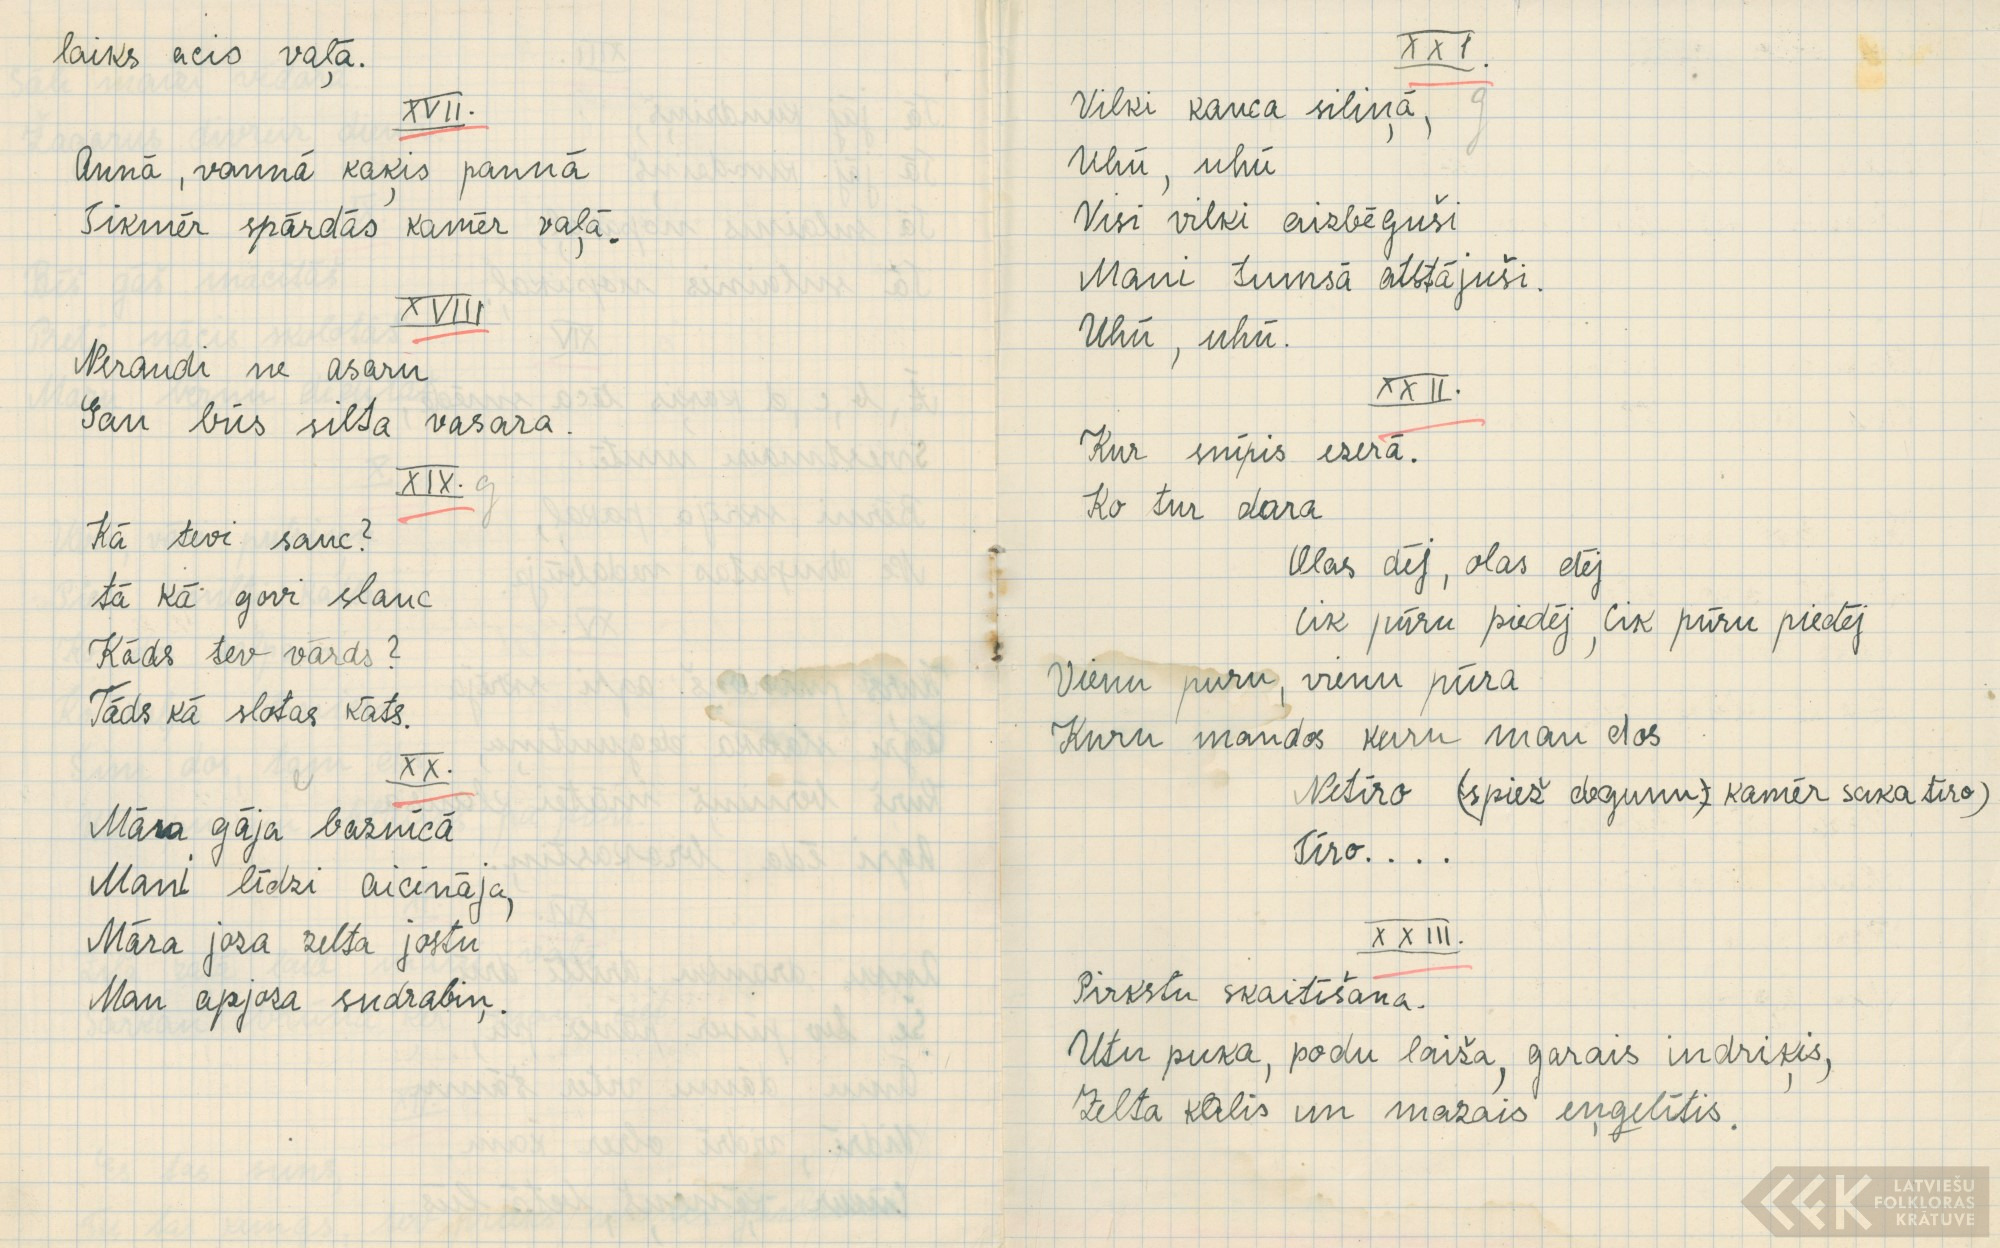 laiks acis vaļā.
XVII.
Annā, vannā kaķis pannā
Tikmēr spārdās kamēr vaļā.
XVIII
Neraudi ne asaru
Gan būs silta vasara.
XIX. g
Kā tevi sauc?
tā kā govi slauc
Kāds tev vārds?
Tāds kā slotas kāts.
XX.
Māra gāja baznīcā
Mani līdzi aicināja,
Māra joza zelta jostu
Man apjoza sudrabiņ.
XXI.
Vilki kauca siliņā, g
Uhū, uhū
Visi vilki aizbēguši
Mani tumsā atstājuši.
Uhū, uhū.
XXII.
Kur snīpis ezerā.
Ko tur dara
Olas dēj, olas dēj
Cik pūru piedēj, Cik pūru piedēj
Vienu puru, vienu pūra
Kuru mandos kuru man dos
Netīro (spiež degunu) kamēr saka tīro)
Tīro....
XXIII.
Pirkstu skaitīšana.
Utu puka, podu laiža, garais indriķis,
Zelta kalis un mazais eņģelītis.
LATVIEŠU
FOLKLORAS
KRĀTUVE